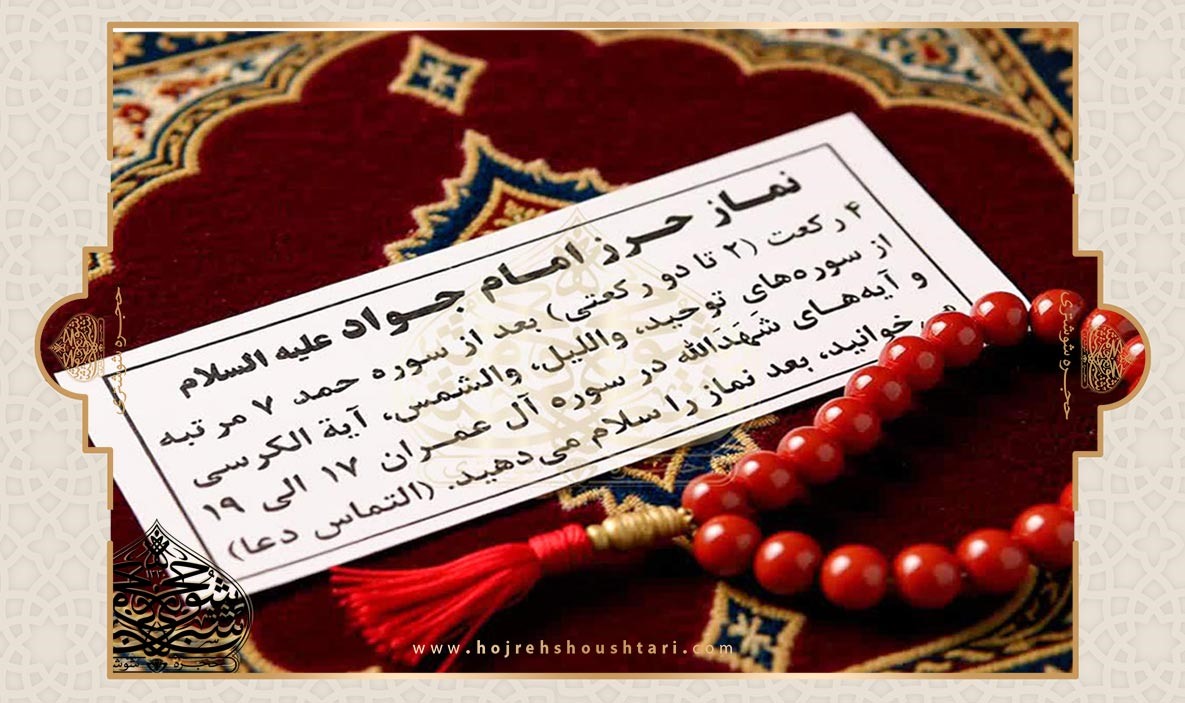 نماز حرز امام جواد علیه السلام
۴ رکعت (۲ تا دو رکعتی) بعد از سوره حمد، ۷ مرتبه
از سوره‌های توحید، واللیل، والشمس، آیة الکرسی
و آیه‌های شَهَدَالله در سوره آل عمران ۱۷ الی ۱۹
خوانید، بعد نماز را سلام می‌دهید. (التماس دعا)
حجره شوشتری
حجره شوشتری
www.hojrehshoushtari.com